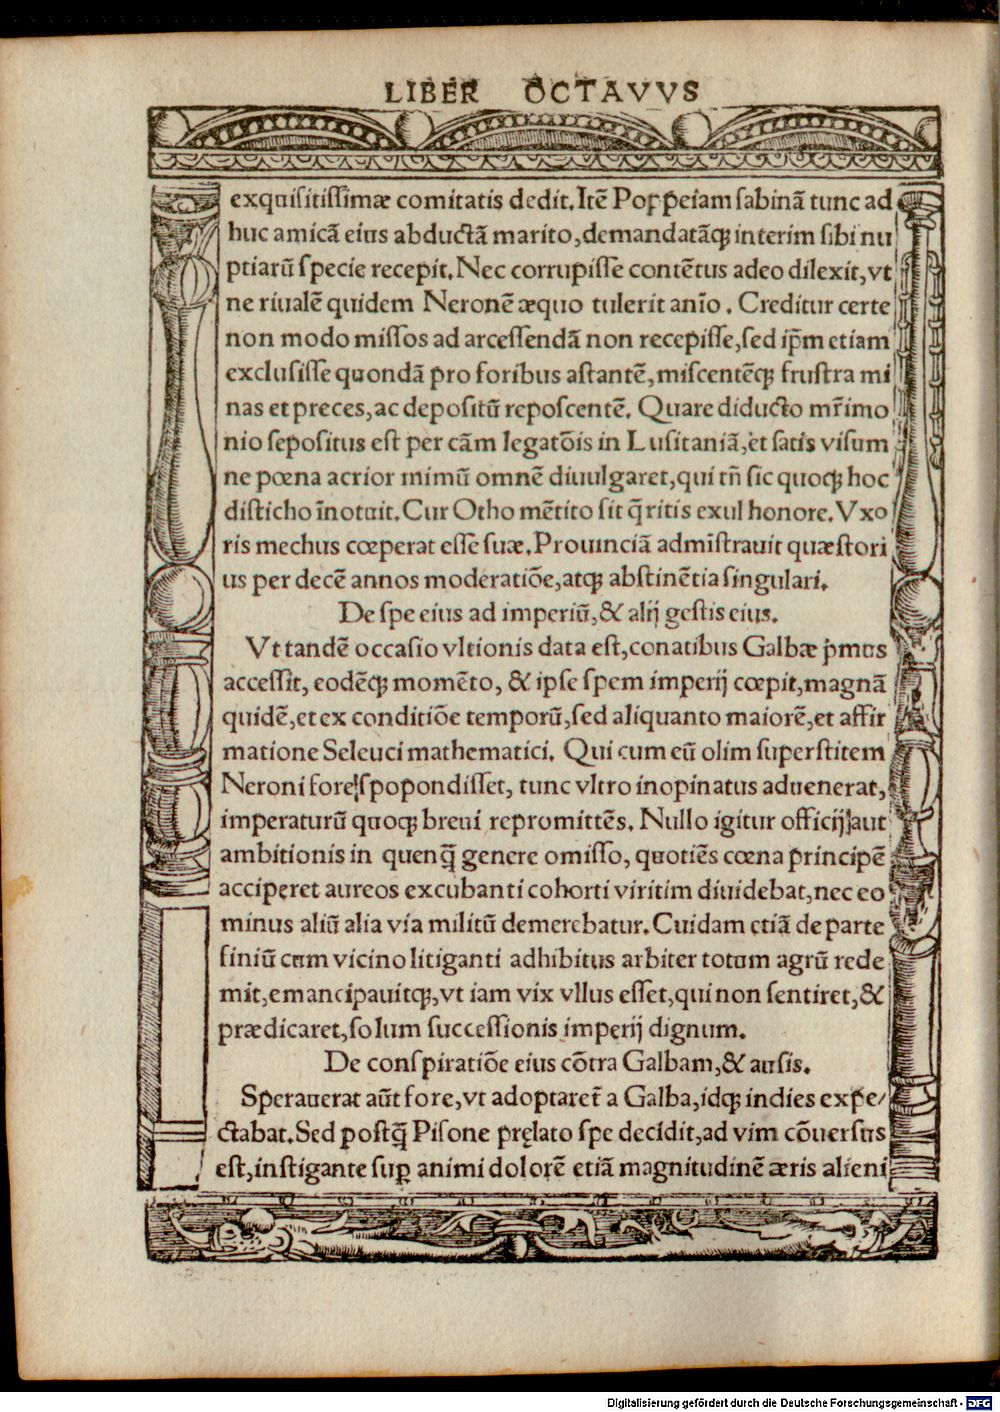 LIBER OCTAVVS
exquisitissimæ comitatis dedit. Itē Poppeiam sabinā tunc ad
huc amicā eius abductā marito, demandatāq; interim sibi nu
ptiarū specie recepit. Nec corrupisse contētus adeo dilexit, vt
ne riualē quidem Neronē æquo tulerit anīo. Creditur certe
non modo missos ad arcessendā non recepisse, sed ip̄m etiam
exclusisse quondā pro foribus astantē, miscentēq; frustra mi
nas et preces, ac depositū reposcentē. Quare diducto mr̄imo
nio sepositus est per cām legatōis in Lusitaniā, et satis visum
ne pœna acrior mimū omnē diuulgaret, qui tn̄ sic quoq; hoc
disticho īnotuit. Cur Otho mētito sit q̄ritis exul honore. Vxo
ris mechus cœperat esse suæ. Prouinciā admīstrauit quæstori
us per decē annos moderatiōe, atq; abstinētia singulari.
De spe eius ad imperiū, & alij gestis eius.
Vt tandē occasio vltionis data est, conatibus Galbæ ṗmus
accessit, eodēq; momēto, & ipse spem imperij cœpit, magnā
quidē, et ex conditiōe temporū, sed aliquanto maiorē, et affir
matione Seleuci mathematici. Qui cum eū olim superstitem
Neroni fore spopondisset, tunc vltro inopinatus aduenerat,
imperaturū quoq; breui repromittēs. Nullo igitur officij aut
ambitionis in quenq̄ genere omisso, quotiēs cœna principē
acciperet aureos excubanti cohorti viritim diuidebat, nec eo
minus aliū alia via militū demerebatur. Cuidam etiā de parte
finiū cum vicino litiganti adhibitus arbiter totum agrū rede
mit, emancipauitq;, vt iam vix vllus esset, qui non sentiret, &
prædicaret, solum successionis imperij dignum.
De conspiratiōe eius cōtra Galbam, & ausis.
Sperauerat aūt fore, vt adoptaret̄ a Galba, idq; indies expe/
ctabat. Sed postq̄ Pisone pręlato spe decidit, ad vim cōuersus
est, instigante suꝑ animi dolorē etiā magnitudinē æris alieni
Digitalisierung gefördert durch die Deutsche Forschungsgemeinschaft - DFG